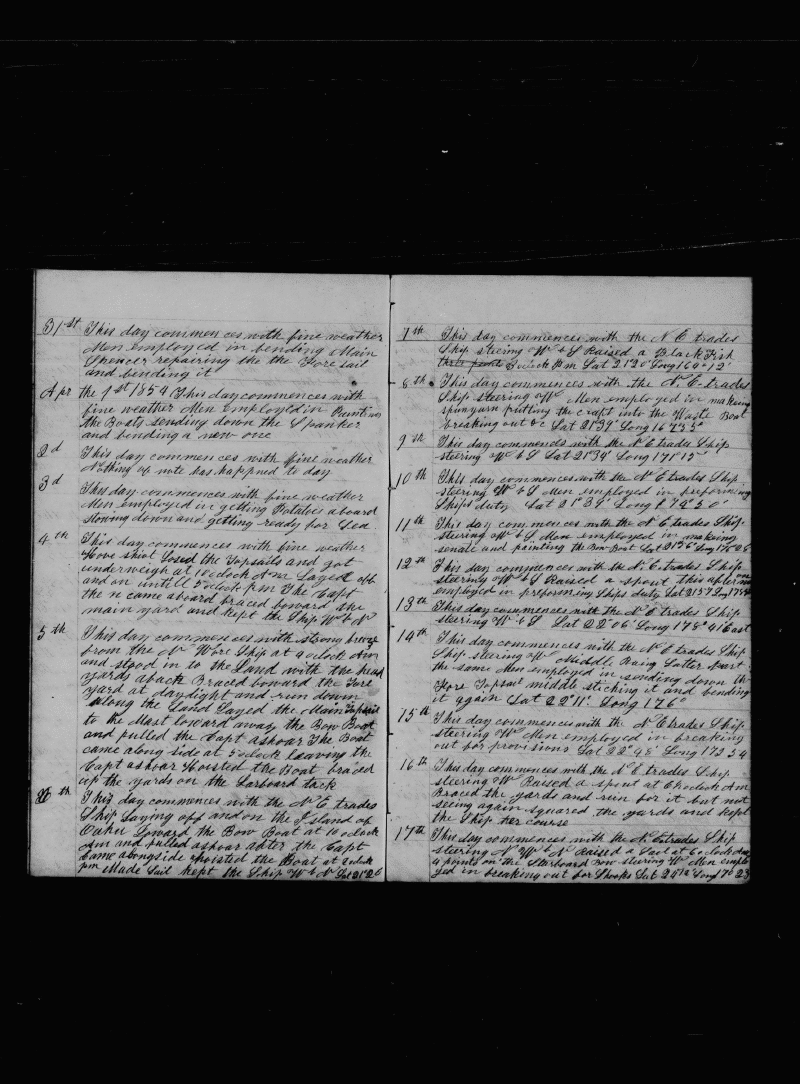 31st This day commences with fine weather
Men employed in bending Main
Spencer repairing the the Fore sail
and bending it
Apr the 1st 1854 This day commences with
fine weather Men Employed in Painting
the Boats sending down the Spanker
and bending a new one
2d This day commences with fine weather
Nothing of note has happned to day
3d This day commences with fine weather
Men employed in getting Potatoes aboard
stowing down and getting ready for Sea
4th This day commences with fine weather
Hove shot Losed the Topsails and got
underweigh at 10 oclock Am Layed off
and on untill 5 oclock Pm The Capt
the n came aboard braced foward the
main yard and kept the Ship W b N
5th This day commences with strong breeze
from the N Wore Ship at 9 oclock Am
and stood in to the Land with the head
yards aback Braced foward the Fore
yard at daylight and run down
along the Land Layed the Main Topsail
to the Mast Loward away the Bow Boat
and pulled the Capt ashoar The Boat
came along side at 5 oclock leaving the
Capt ashoar Hoisted the Boat braced
up the yards on the Larboard tack
6th This day commences with the N E trades
Ship Laying off and on the Island of
Oahu Loward the Bow Boat at 10 oclock
Am and pulled ashoar after the Capt
Came alongside Hoisted the Boat at 2 oclock
pm Made Sail kept the Ship W b N Lat 21° 20
7th This day commences with the N E trades
Ship steering W b S Raised a Black Fish
oclock Pm Lat 21° 30' Long 164° 12'
8th This day commences with the N. E. trades
Ship steering W Men employed in making
spunyarn putting the craft into the Waste Boat
breaking out &c Lat 21° 39' Long 167 35"
9th This day commences with the N E trades Ship
steering W b S Lat 21° 34' Long 171° 15"
10th This day commences with the N E trades Ship
steering W b S Men employed in preforming
Ships duty Lat 21° 39' Long 174° 30'
11th This day commences with the N E trades Ship
steering W b S Men employed in making
senate and painting the Bow Boat Lat 21° 56' Long 176 26
12th This day commences with the N. E. trades Ship
steering W b S Raised a spout this afternoon
employed in preforming Ships duty Lat 21 57 Long
13th This day commences with the N E trades Ship
steering W b S Lat 22° 06' Long 178° 41 East
14th This day commences with the N E trades Ship
Ship steering W Middle Raing Latter Part
the same Men employed in sending down the
Fore Topsail middle stiching it and bending
it again Lat 22° 11' Long 176°
15th This day commences with the N E trades Ship
steering W Men employed in breaking
out for provisions Lat 22° 48' Long 173 54
16th This day commences with the N E trades Ship
steering W Raised a spout at oclock Am
Braced the yards and run for it but not
seeing again squared the yards and kept
the Ship her course
17th This day commences with the N E trades Ship
steering N W b N Raised a Sail at 6 oclock Am
4 points on the Starboard Bow steering W Men emplo
yed in breaking out for Shooks Lat 24° 12' Long 170 23